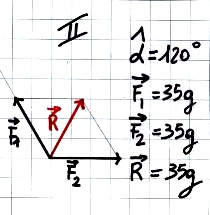 II
α̂=120°
F⃗₁=35g
F⃗₂=35g
R⃗=35g
F⃗₁
R⃗
F⃗₂